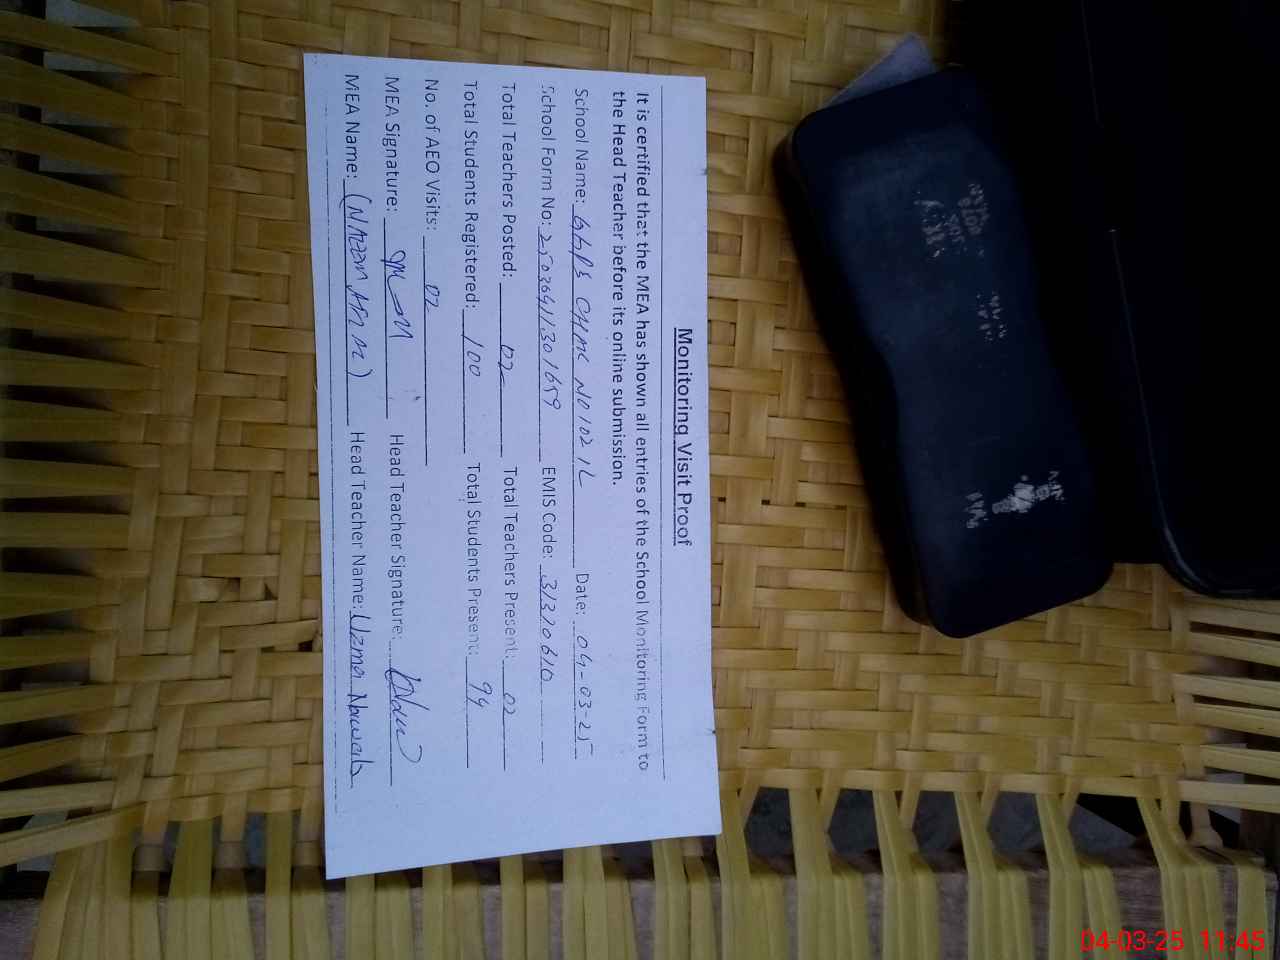 Monitoring Visit Proof
It is certified that the MEA has shown all entries of the School Monitoring Form to
the Head Teacher before its online submission.
School Name: GGPS CHAK NO 102 1L Date: 04-03-25
School Form No: 25036411301659 EMIS Code: 31320610
Total Teachers Posted: 02 Total Teachers Present: 02
Total Students Registered: 100 Total Students Present: 94
No. of AEO Visits: 02
MEA Signature: Head Teacher Signature:
MEA Name: Head Teacher Name: Uzma
04-03-25 11:45